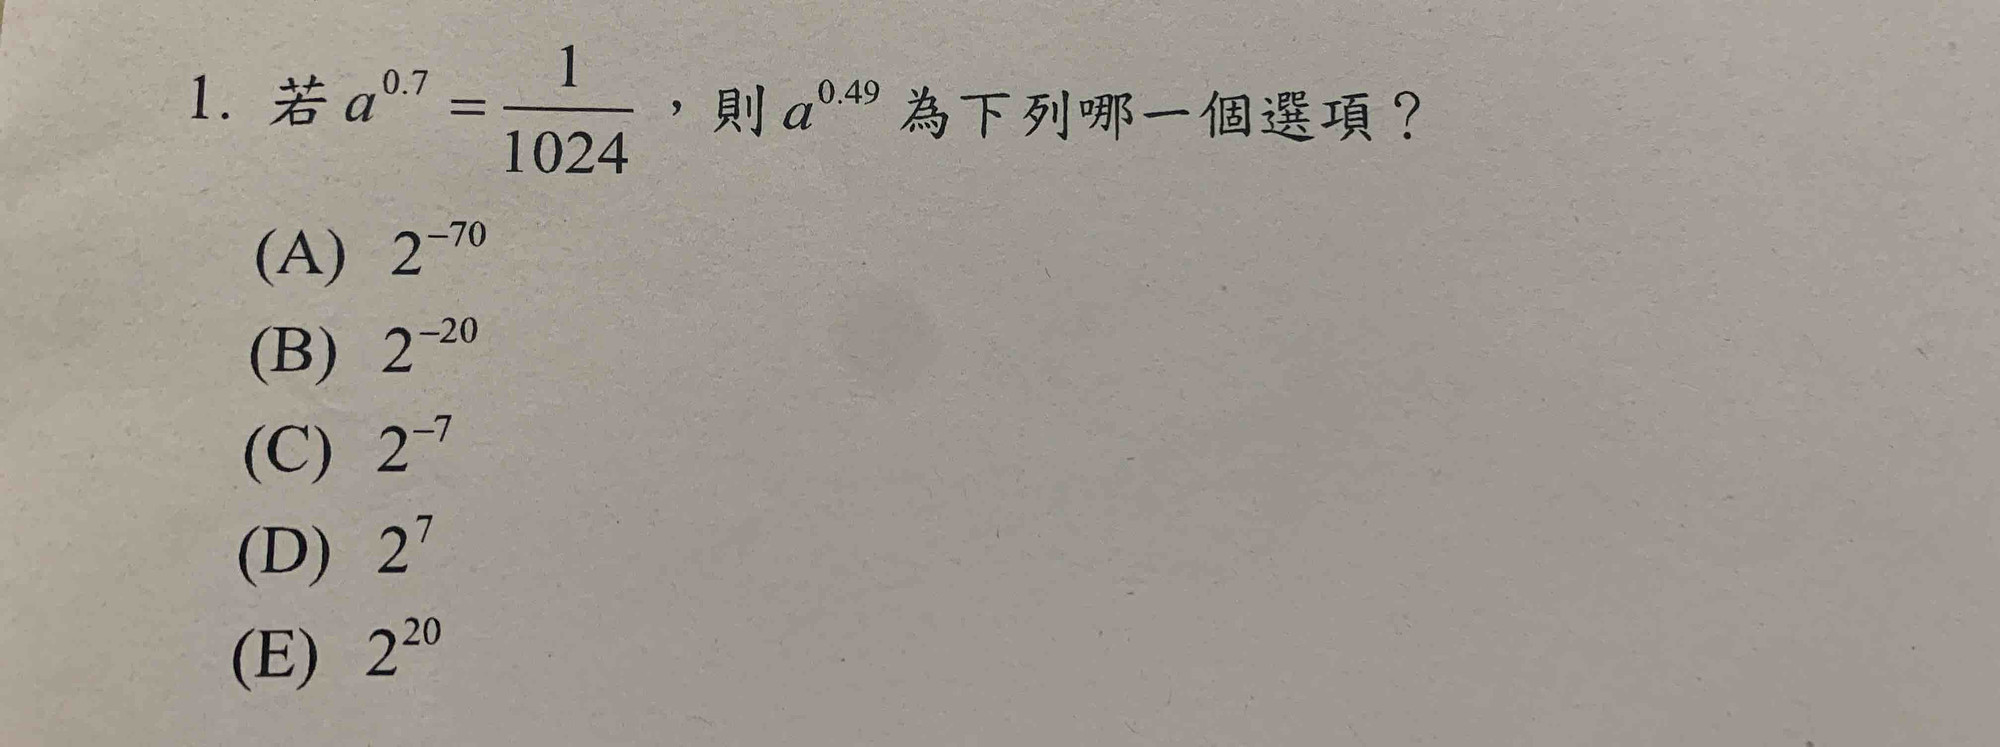 1. 若 a^0.7 = 1/1024，則 a^0.49 為下列哪一個選項？
(A) 2^−70
(B) 2^−20
(C) 2^−7
(D) 2^7
(E) 2^20